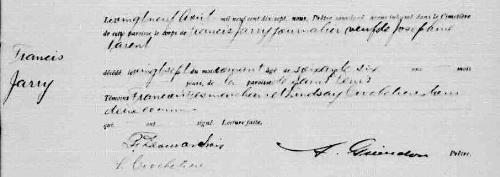 Le vingt neuf Août mil neuf cent dix sept, nous, Prêtre soussigné avons inhumé dans le Cimetière
de cette paroisse le corps de Francis Jarry journalier veuf de Josephine
Parent
Francis
Jarry
décédé le vingt sept du mois courant âgé de soixante six ans mois
jours, de la paroisse de Saint Denis
Témoins Lindsay Crochetière
que ont signé. Lecture faite.
F. Desmarchais
L. Crochetière
A. Guindon Prêtre.